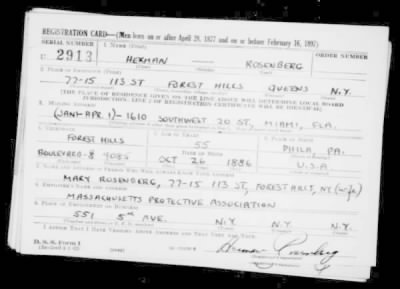 REGISTRATION CARD—(Men born on or after April 28, 1877 and on or before February 16, 1897)
SERIAL NUMBER 1. NAME (Print) ORDER NUMBER
U 2913 HERMAN ROSENBERG
2. PLACE OF RESIDENCE (Print)
77-15 113 ST FOREST HILLS QUEENS N.Y.
[THE PLACE OF RESIDENCE GIVEN ON THE LINE ABOVE WILL DETERMINE LOCAL BOARD
JURISDICTION; LINE 2 OF REGISTRATION CERTIFICATE WILL BE IDENTICAL]
3. MAILING ADDRESS
(JAN 1-APR 1)-1610 SOUTHWEST 20 ST, MIAMI, FLA.
4. TELEPHONE 5. AGE IN YEARS 6. PLACE OF BIRTH
FOREST HILLS 55 PHILA PA.
DATE OF BIRTH
BOULEVARD-8 4085 OCT 26 1886 U.S.A
7. NAME AND ADDRESS OF PERSON WHO WILL ALWAYS KNOW YOUR ADDRESS
MARY ROSENBERG, 77-15 113 ST, FOREST HILLS, NY (wife)
8. EMPLOYER'S NAME AND ADDRESS
MASSACHUSETTS PROTECTIVE ASSOCIATION
9. PLACE OF EMPLOYMENT OR BUSINESS
551 5TH AVE. N.Y. N.Y. N.Y.
I AFFIRM THAT I HAVE VERIFIED ABOVE ANSWERS AND THAT THEY ARE TRUE.
D. S. S. Form 1 Herman Rosenberg